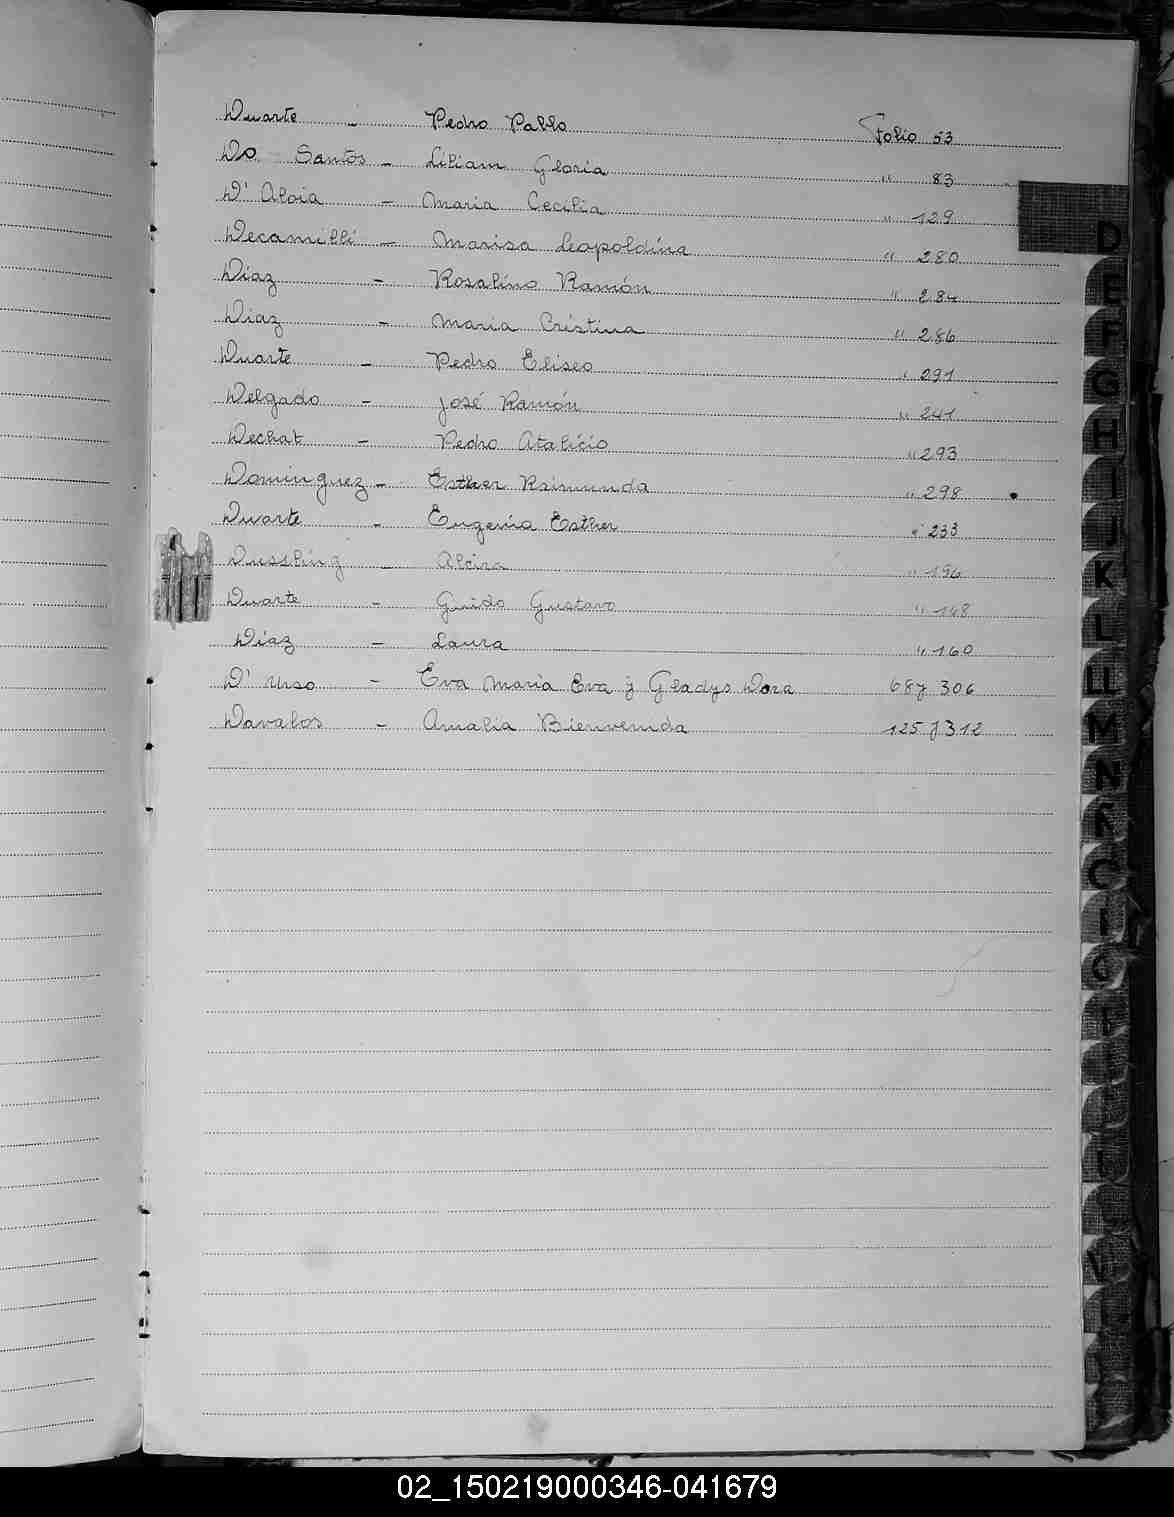 Duarte - Pedro Pablo Folio 53
Do Santos - Liliam Gloria " 83
D' Aloia - Maria Cecilia " 129
Decamilli - Marisa Leopoldina " 280
Diaz - Rosalino Ramón " 284
Diaz - Maria Cristina " 286
Duarte - Pedro Eliseo " 291
Delgado - José Ramón " 241
Dechat - Pedro Atalicio " 293
Dominguez - Esther Raimunda " 298
Duarte - Eugenia Esther " 233
Dussling - Alcira " 196
Duarte - Guido Gustavo " 148
Díaz - Laura " 160
D' Urso - Eva Maria Eva y Gladys Dora 68 y 306
Davalos - Amalia Bienvenida 125 y 312
D
E
F
G
H
I
J
K
L
M
N
02_150219000346-041679